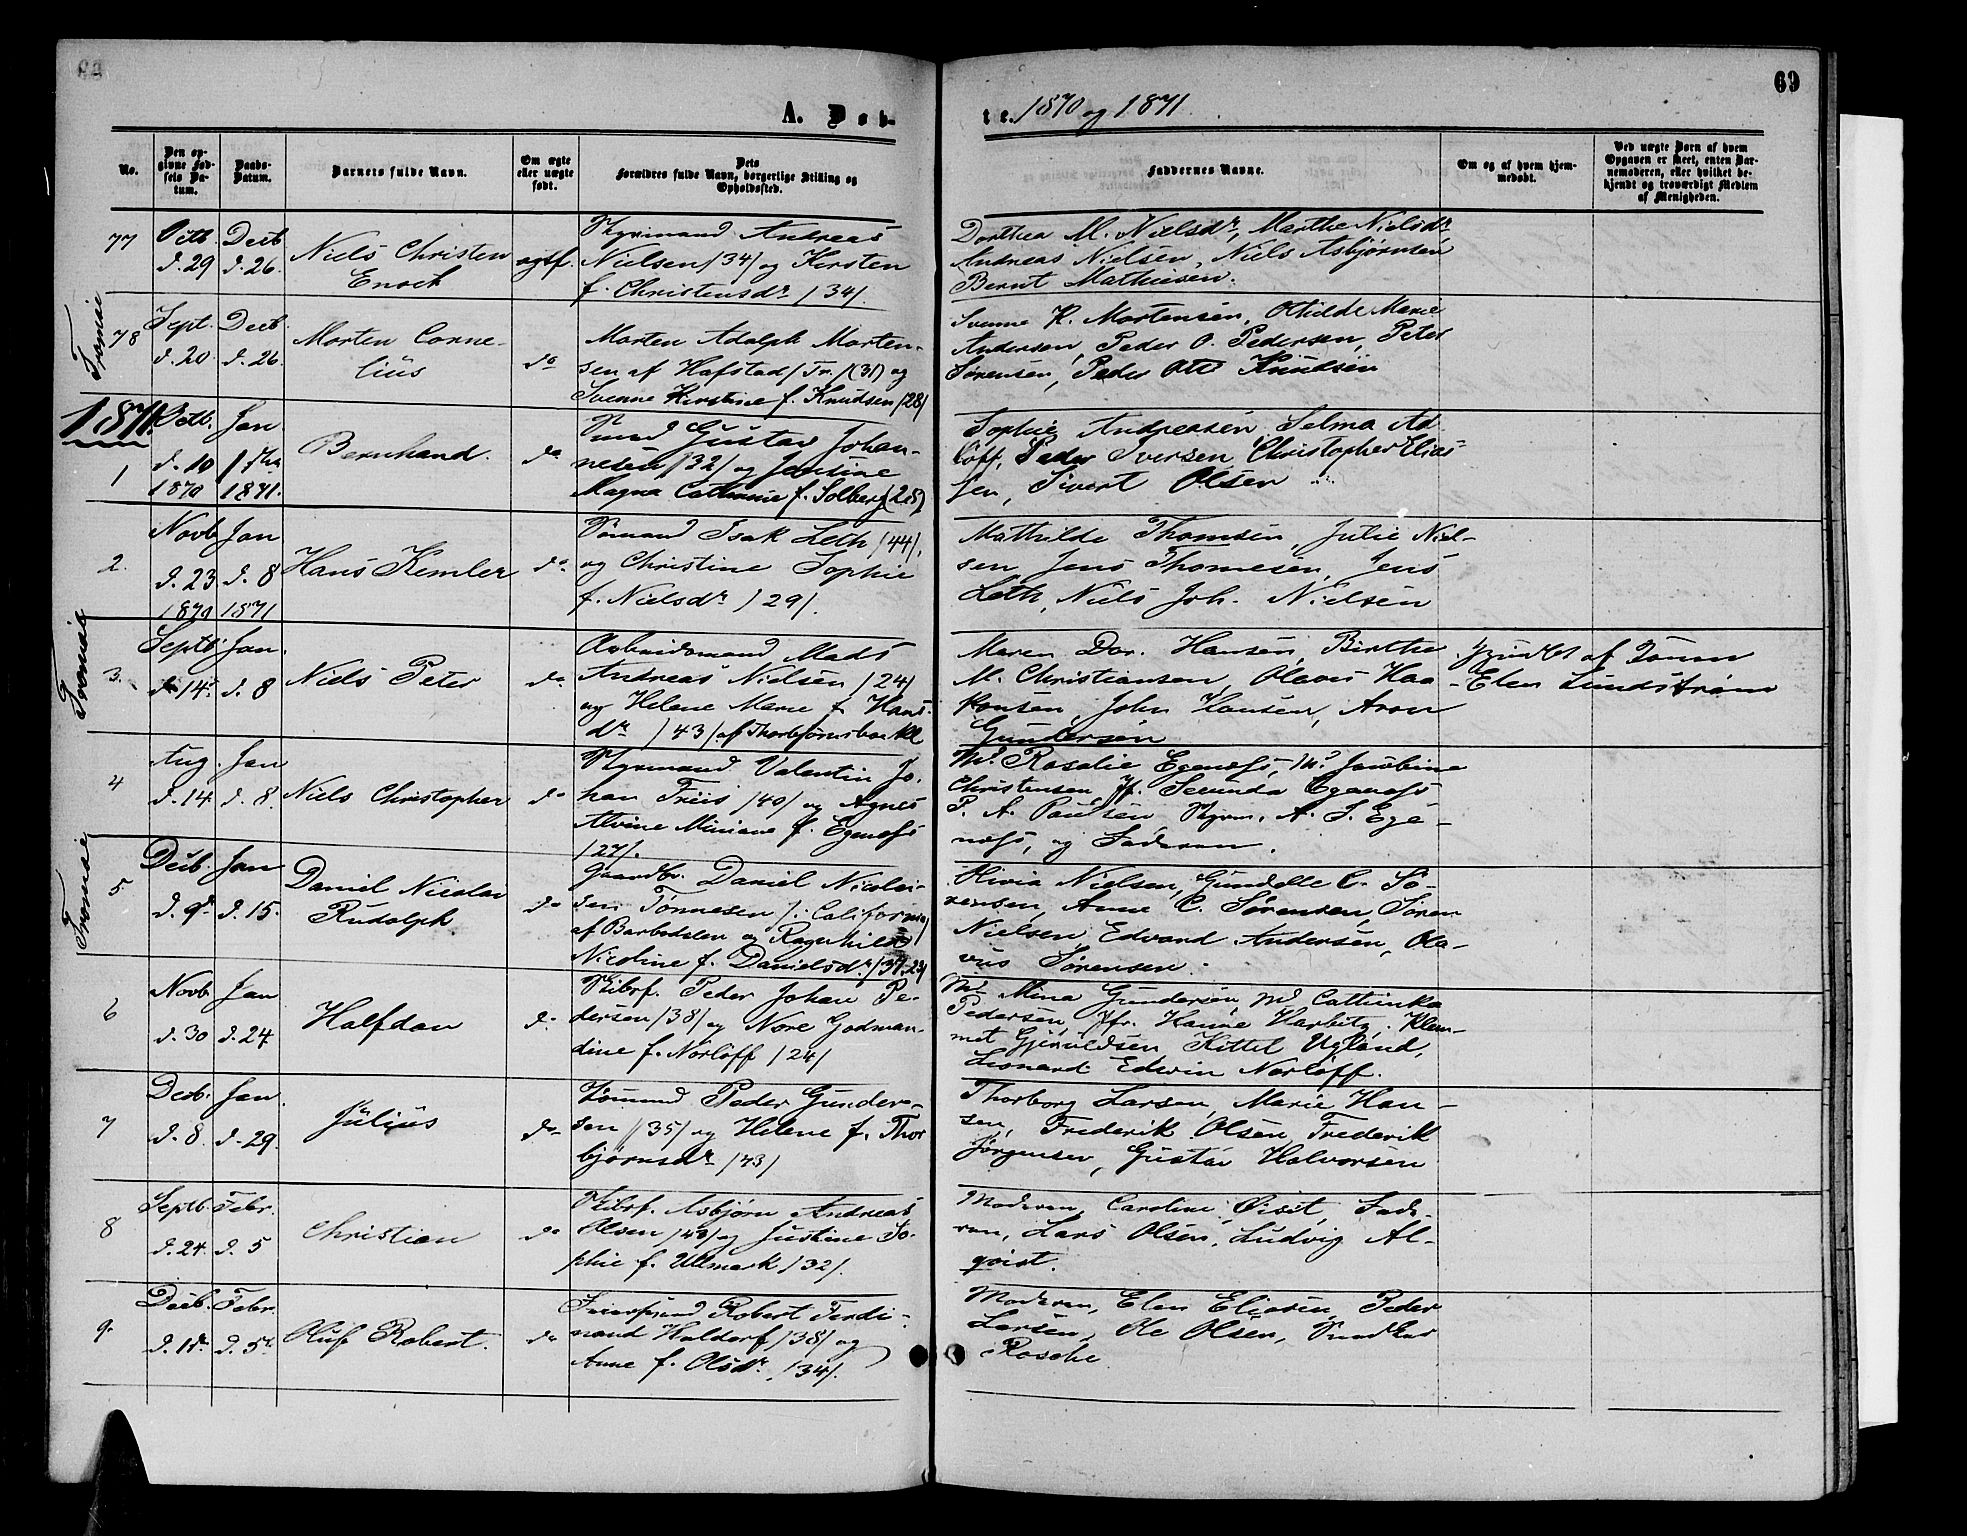 69
A. Døb-
te. 1870 og 1871.
No.
Den op-
givne Fød-
sels Da-
tum.
Daabs-
Datum.
Barnets fulde Navn.
Om ægte
eller uægte
født.
Dets
Forældres fulde Navn, borgerlige Stilling og
Opholdssted.
Faddernes Navne.
Om og af hvem hjem-
medøbt.
Ved uægte Børn af hvem
Opgaven er skeet, enten Bar-
nemoderen, eller hvilket be-
kjendt og troværdigt Medlem
af Menigheden.
77
Octb.
d. 29
Decb
d. 26.
Niels Christen
Enock
ægtf.
Andreas
Nielsen /34/ og Kirsten
f. Christensdr /34/.
Dorthea M. Nielsdr, Marthe Nielsdr
Andreas Nielsen, Niels Asbjørnsen
Bernt Mathiesen.
Tromøe
78
Sept.
d. 20
Decb.
d. 26.
Morten Corne-
lius
do
Morten Adolph Morten-
sen af Hafstad /Tr./ (31) og
Svenne Kirstine f. Knudsen /28/
Svenne K. Mortensen, Othilde Marie
Andersen, Peder O. Pedersen, Peter
Sørensen, Peder Ott Knudsen
1871.
1
Octb.
d. 10
1870
Jan.
1ste
1871.
Bernhard.
do
Gustav Johan-
nesen /32/ og Jensine
Magna Cathrine f. Solberg (28)
Sophie Andreasen, Selma Ad
løff, Peder Iversen, Christopher Elias
sen, Sivert Olsen
2.
Novb
d. 23
1870
Jan
d. 8
1871
Hans Kemler
do
Isak Leth /44/,
og Christine Sophie
f. Nielsdr /29/.
Mathilde Thomsen, Julie Niel-
sen Jens Thomesen, Jens
Leth, Niels Joh. Nielsen
Tromøe
3.
Septb.
d. 14
Jan.
d. 8
Niels Peter
do
Arbeidsmand Mads
Andreas Nielsen /24/
og Helene Marie f. Hans-
dr /43/ af
Maren Dor. Hansen, Birthe
M. Christiansen, Olevis Haa-
konsen, John Hansen, Aron
Gundersen
af
Elen Lundstrøm
4
Aug.
d. 14
Jan
d. 8.
Niels Christopher
do
Valentin Jo-
han Friis /40/ og Agnes
Alvine Miniane f. Egenæss
/27/.
Md. Rosalie Egenæss, Md. Jacobine
Christensen, Jf. Secunda Egenæss
P. A. Paulsen A. S. Ege-
næss, og Faderen.
Tromøe
5
Decb.
d. 9de
Jan
d. 15.
Daniel Nicolai
Rudolph.
do
Gaardbr. Daniel Nicolai-
sen Tønnesen /: California/
af Barbodalen og Ragnhild
Nicoline f. Danielsdr. /37.29/
Olivia Nielsen, Gundelle C. Sø-
rensen, Anne C. Sørensen, Søren
Nielsen, Edvard Andersen, Ola-
vus Sørensen.
6
Novb
d. 30
Jan
d. 24.
Halfdan
do
Skibsf. Peder Johan Pe-
dersen /38/ og Nore Godman-
dine f. Norløff /24/
Md. Mina Gundersen, Md Cathinka
Pedersen, Jfr. Hanne Harbitz, Klem-
met Gjeruldsen, Kittil Ugland,
Leonard Edwin Norløff.
7
Decb.
d. 8.
Jan.
d. 29.
Julius
do
Sømand Peder Gunder-
sen /35/ og Helene f. Thor
bjørnsdr /43/
Thorborg Larsen, Marie Han-
sen, Frederik Olsen, Frederik
Jørgensen, Gustav Halvorsen
8
Septb.
d. 24.
Febr.
d. 5
Christian
do
Skibsf. Asbjørn Andreas
Olsen /40/ og Justine So-
phie f. Ullmark /32/.
Moderen, Caroline Fade-
ren, Lars Olsen, Ludvig Al-
qvist.
9.
Decb.
d. 11te
Febr.
d. 5te
Oluf Robert.
do
Robert Ferdi-
nand Haldorf /38/ og
Anne f. Olsdr. /34/.
Moderen, Elen Eliasen, Peder
Larsen, Ole Olsen,
Rosche